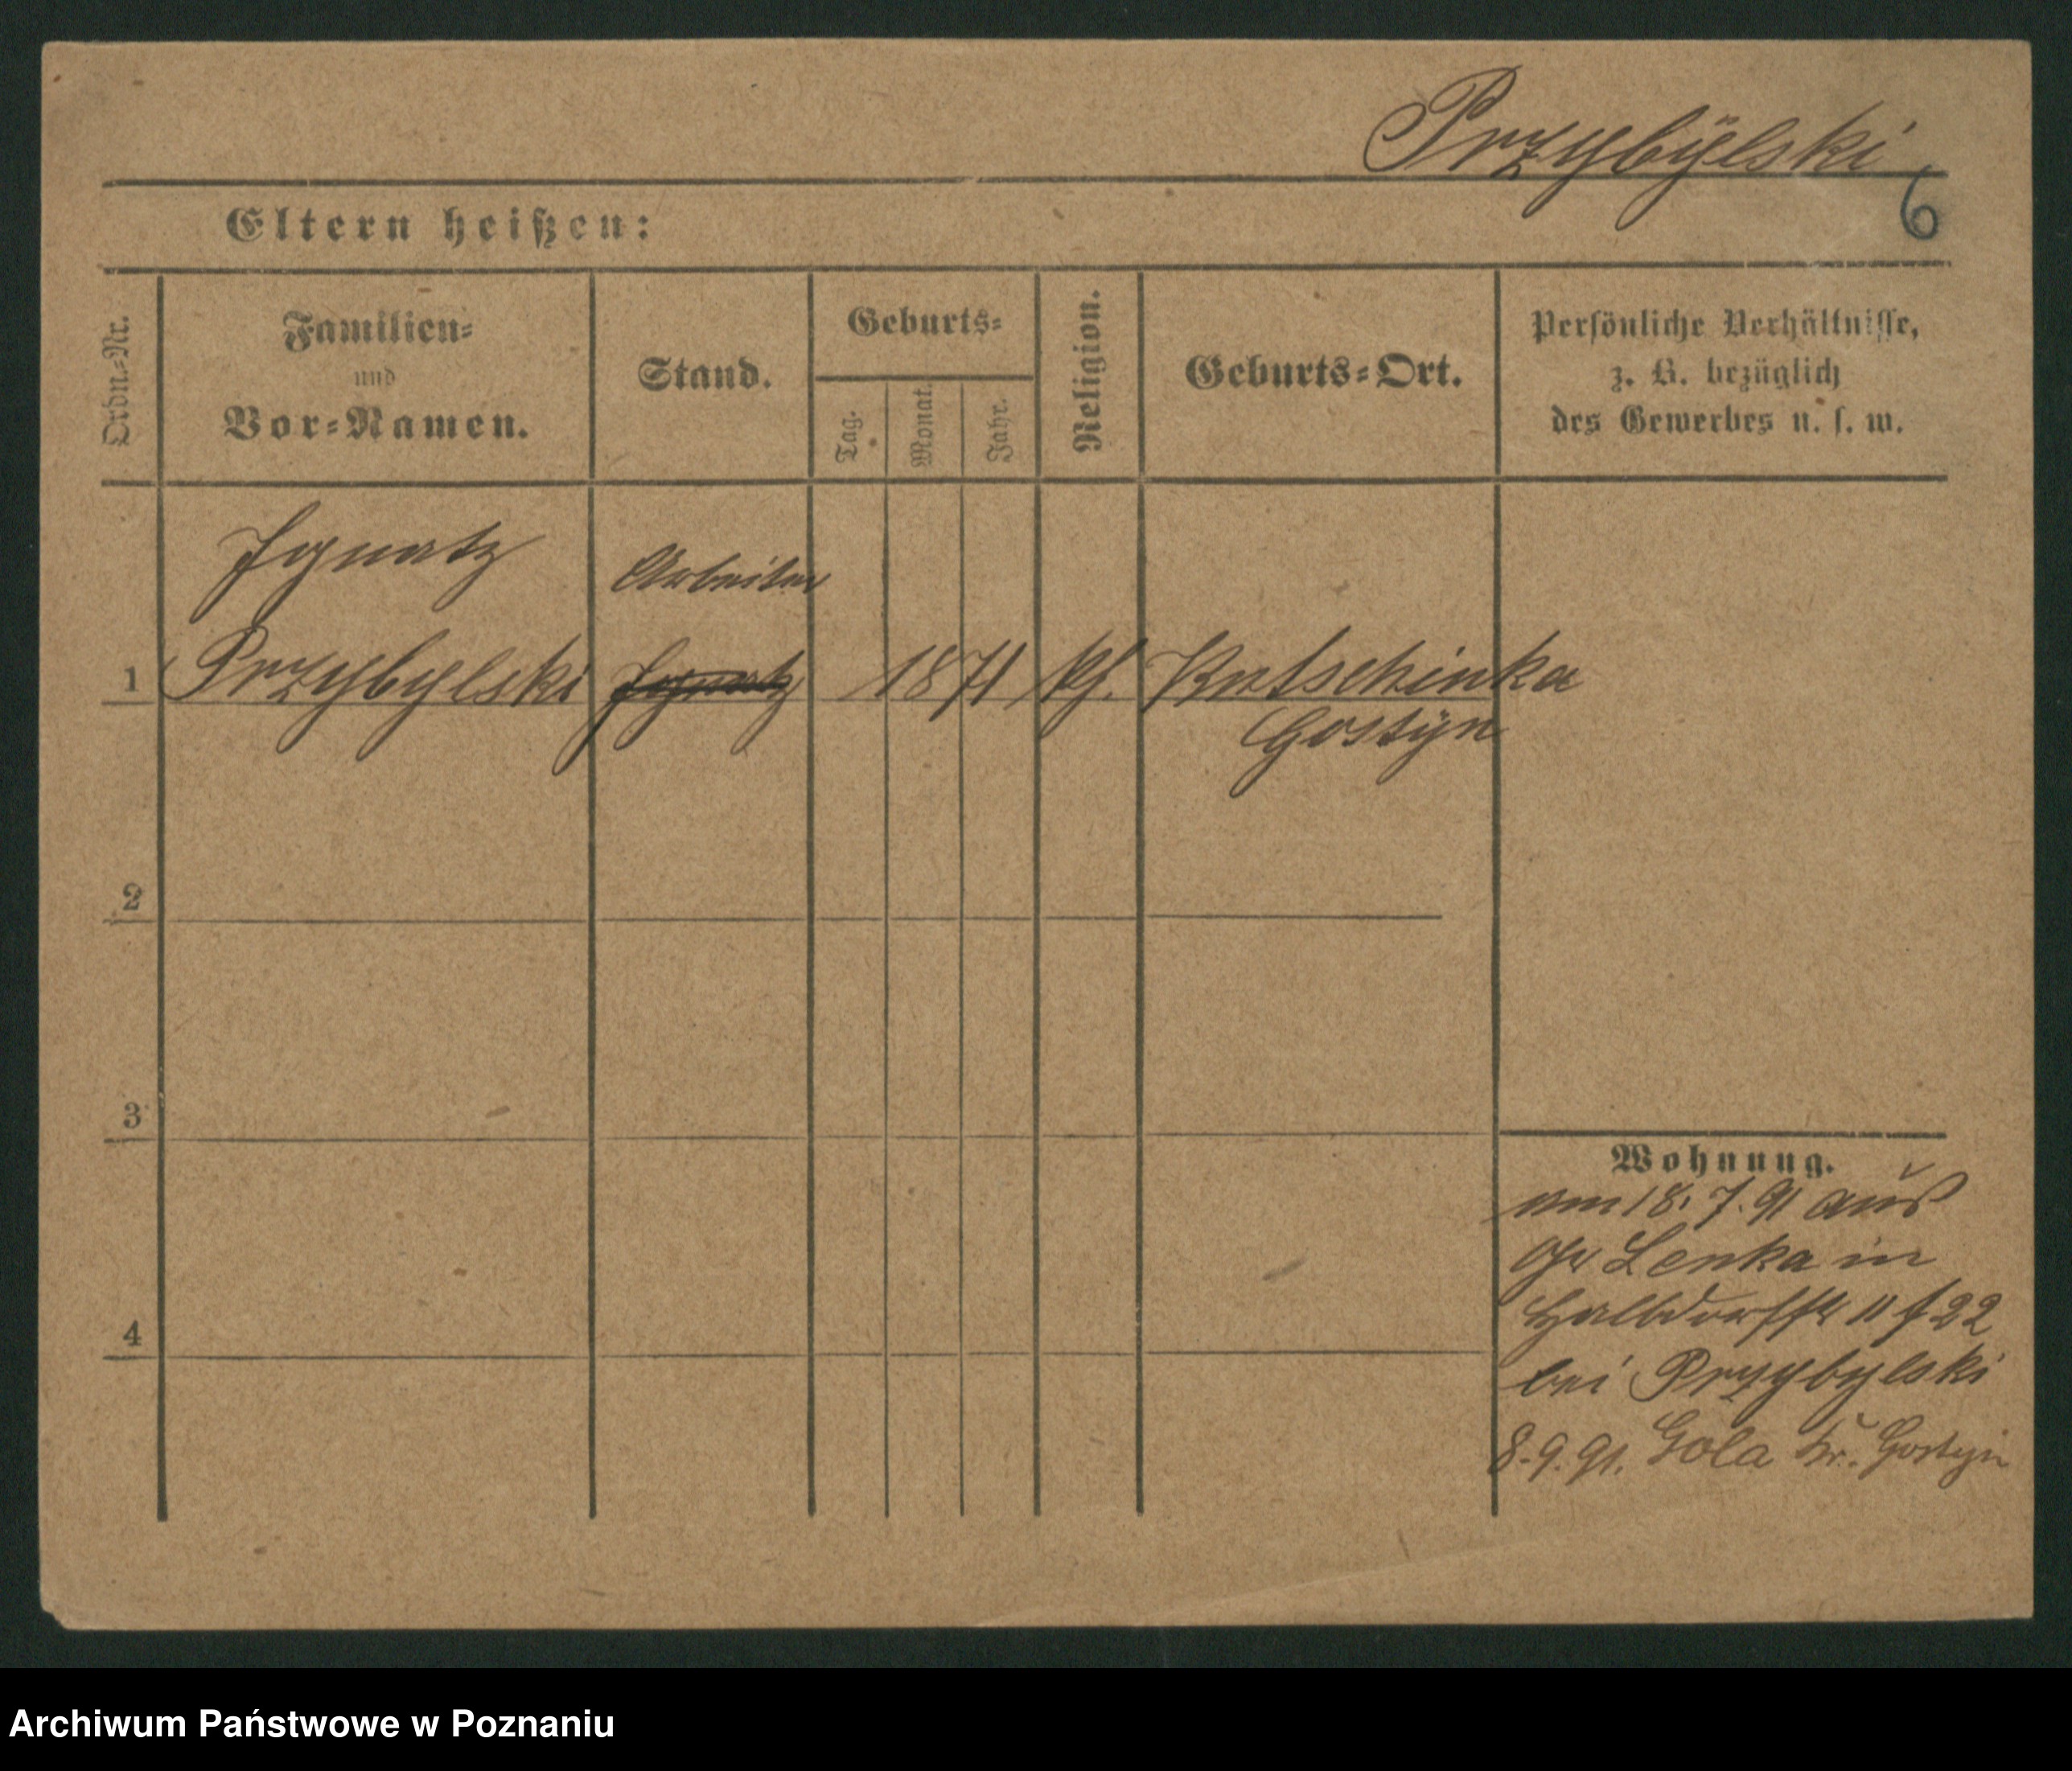 Przybÿlski
6
Eltern heißen:
Ordn.-Nr.
Familien-
und
Vor-Namen.
Stand.
Geburts-
Tag.
Monat.
Jahr.
Religion.
Geburts-Ort.
Persönliche Verhältnisse,
z. B. bezüglich
des Gewerbes u. s. w.
Ignatz
Arbeiter
1 Przybylski Ignatz 1871 kf. Krtschinka
Gostÿn
2
3
4
Wohnung.
am 18.7.91 aus
Gr Lenka in
Halbdorfstr 11 f 22
bei Przybylski
8.9.91. Gola Kr. Gostyn
Archiwum Państwowe w Poznaniu